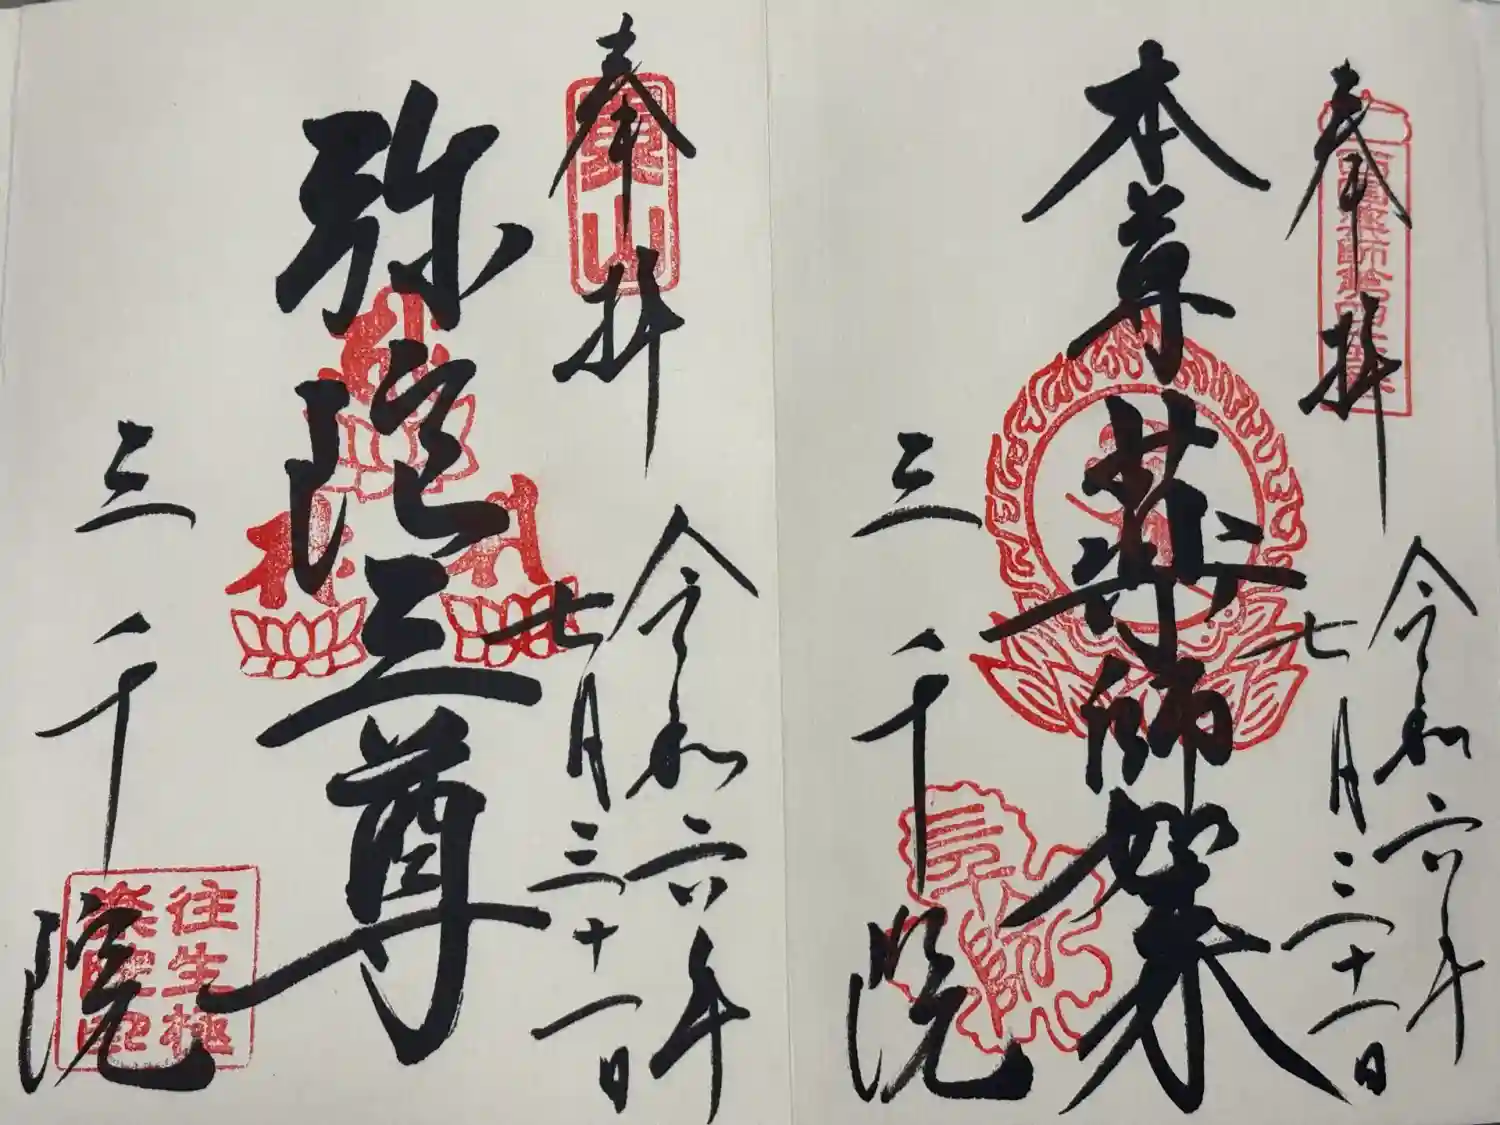 奉拝
本尊薬師如来
令和六年
七月三十一日
三千院
奉拝
弥陀三尊
令和六年
七月三十一日
三千院
往生極
楽院印